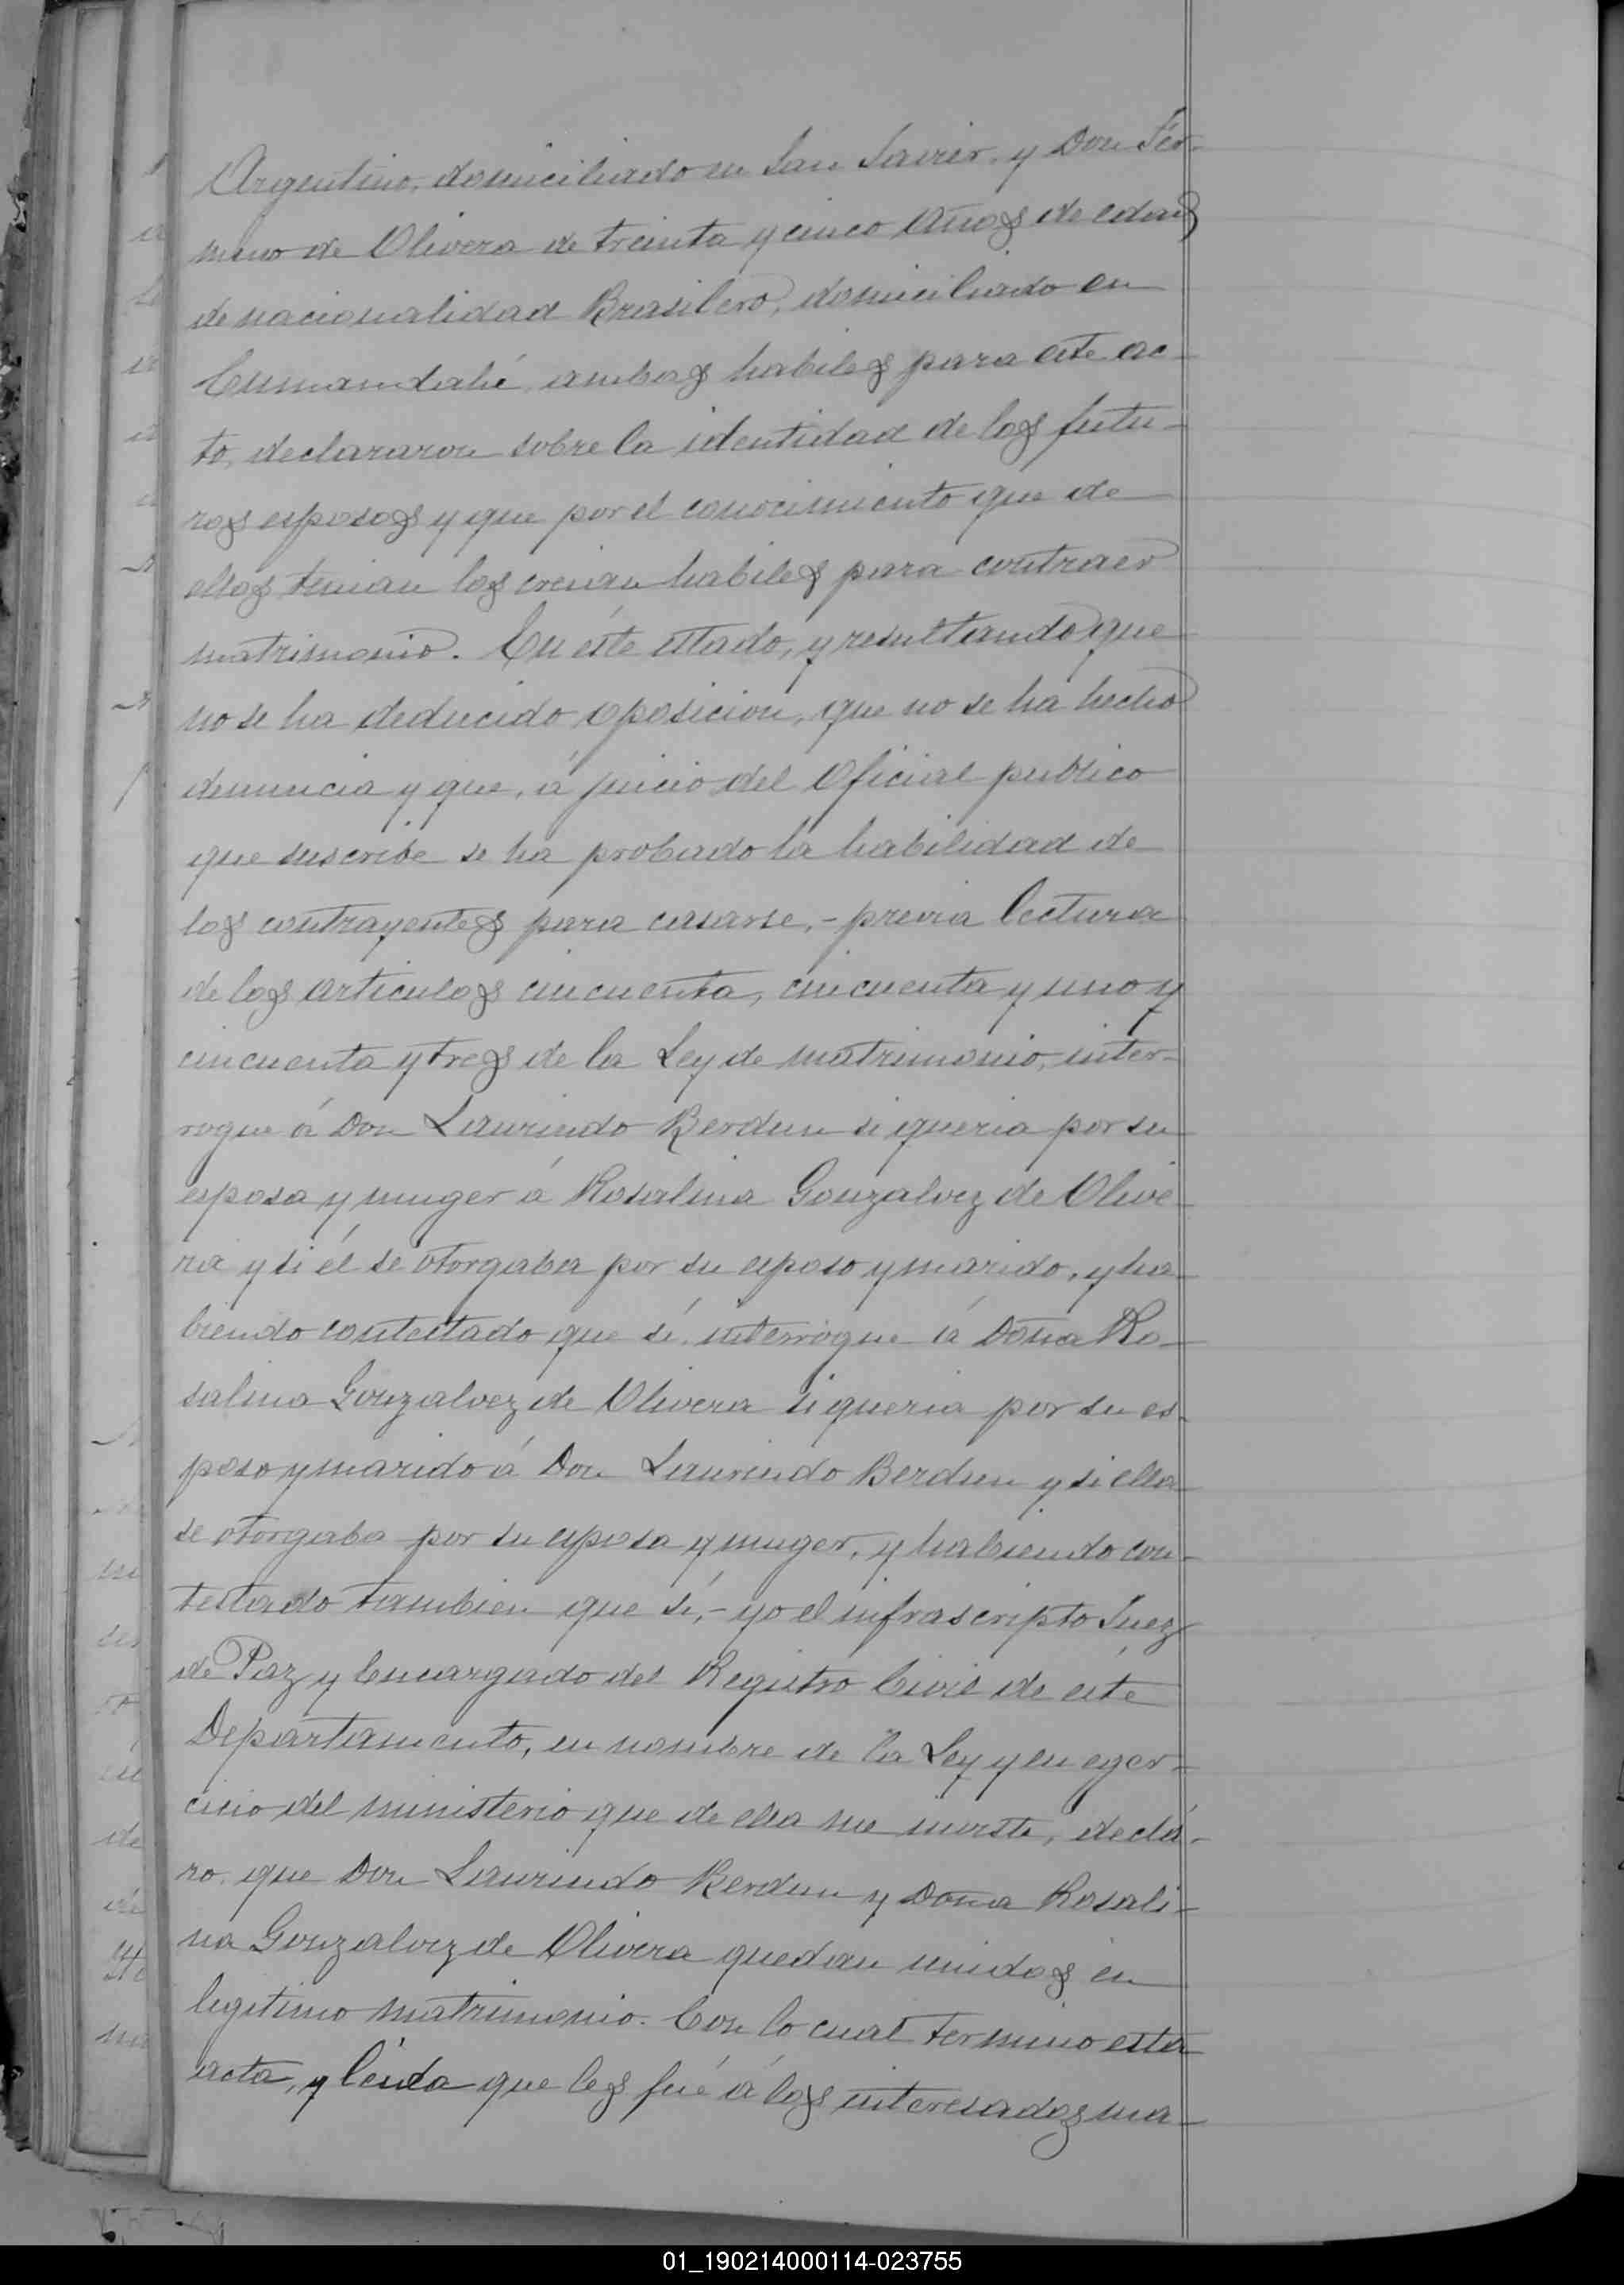 Argentino, domiciliado en San Javier y Don Fér-
mino de Olivera de treinta y cinco años de edad
de nacionalidad Brasilero, domiciliado en
ambos habiles para este ac-
to, declararon sobre la identidad de los futu-
ros esposos y que por el conocimiento que de
ellos tenian los creian habiles para contraer
matrimonio. En éste estado, y resultando que
no se ha deducido oposicion, que no se ha hecho
denuncia y que, á juicio del Oficial publico
que suscribe se ha probado la habilidad de
los contrayentes para casarse, - previa lectura
de los articulos cincuenta, cincuenta y uno y
cincuenta y tres de la Ley de matrimonio, inter-
rogue á Don Laurindo Berdun si queria por su
esposa y muger á Rosalina Gonzalvez de Olive-
ra y si él se otorgaba por su esposo y marido, y ha-
biendo contestado que sí, interrogue á Doña Ro-
salina Gonzalvez de Olivera si queria por su es-
poso y marido á Don Laurindo Berdun y si ella
se otorgaba por su esposa y muger, y habiendo con-
testado tambien que sí, - yo el infrascripto Juez
de Paz y Encargado del Registro Civil de éste
Departamento, en nombre de la Ley y en eger-
cicio del ministerio que de ella me inviste, declá-
ro que Don Laurindo Berdun y Doña Rosali-
na Gonzalvez de Olivera quedan unidos en
legitimo matrimonio. Con lo cual termino esta
acta, y leida que les fué á los interesados ma-
01_190214000114-023755